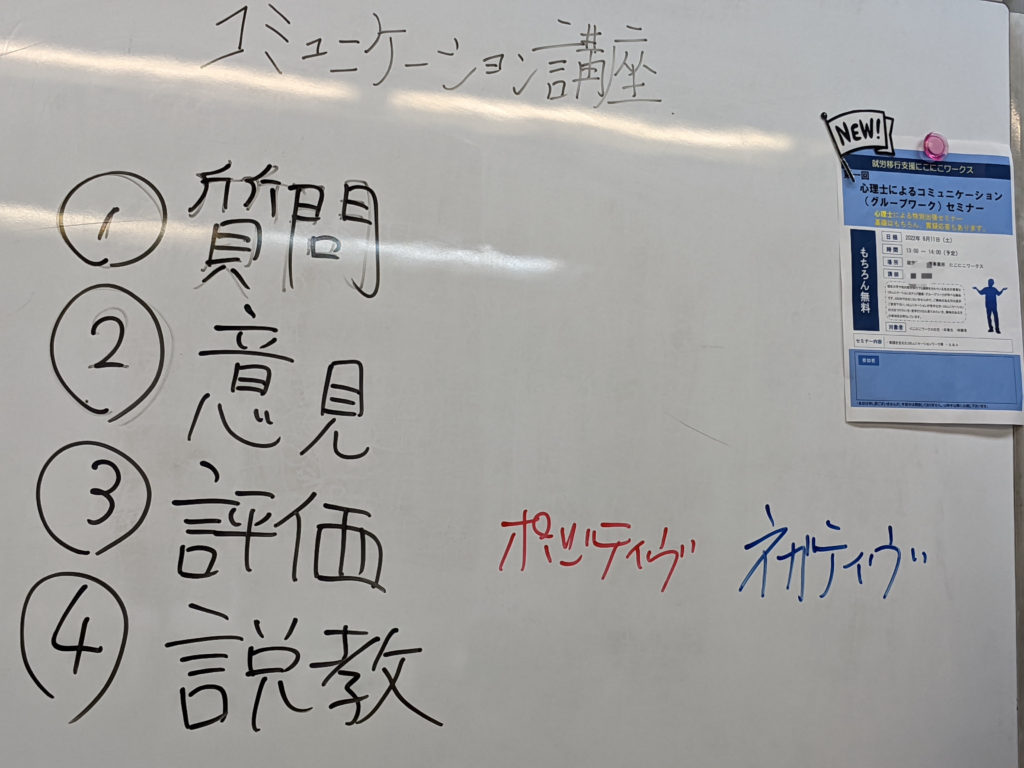 コミュニケーション講座
① 質問
② 意見
③ 評価 ポジティヴ ネガティヴ
④ 説教
NEW!
就労移行支援にこにこワークス
第一回
心理士によるコミュニケーション
(グループワーク)セミナー
心理士による特別出張セミナー
基礎はもちろん、質疑応答もあります。
もちろん無料
日程 2022年 6月11日(土)
時間 13:00 ~ 14:00 (予定)
場所 にこにこワークス
講師
対象者
セミナー内容
参加者